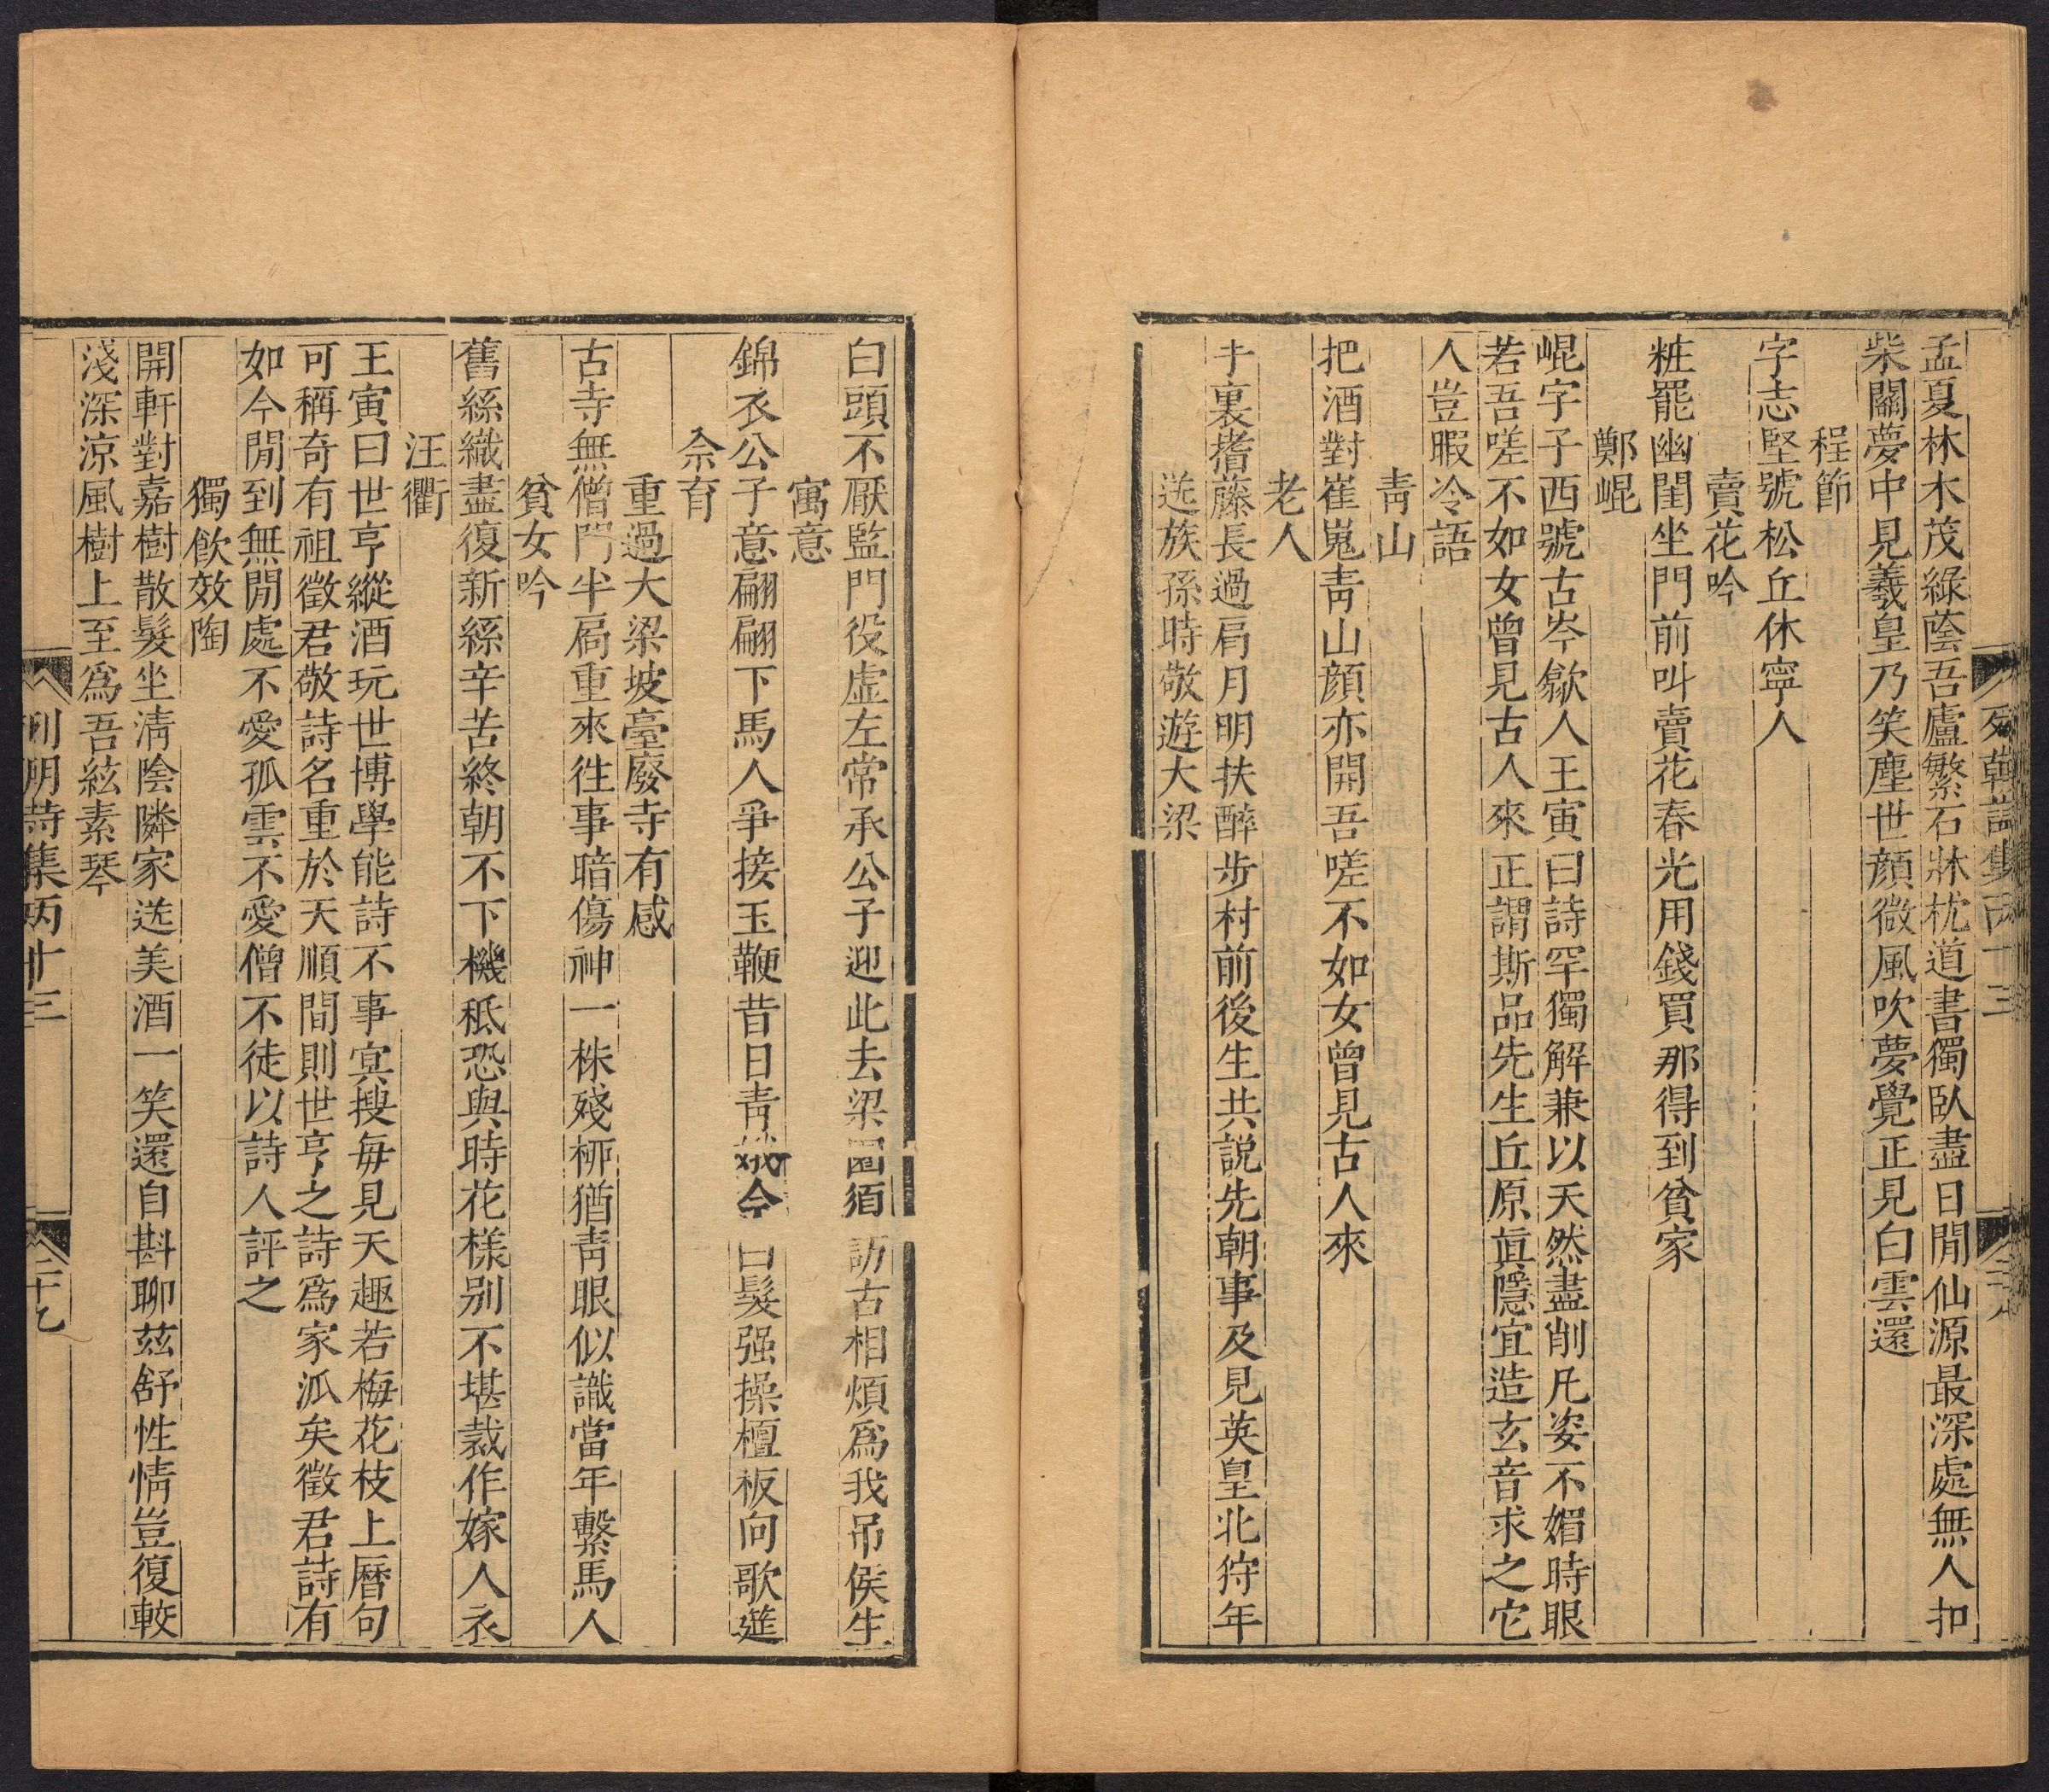 列朝詩集丙十三
孟夏林木茂綠蔭吾廬繁石牀枕道書獨臥盡日閒仙源最深處無人扣
柴關夢中見羲皇乃笑塵世顏微風吹夢覺正見白雲還
程節
字志堅號松丘休寧人
賣花吟
粧罷幽閨坐門前叫賣花春光用錢買那得到貧家
鄭崐
崐字子西號古岑歙人王寅曰詩罕獨解兼以天然盡削凡姿不媚時眼
若吾嗟不如女曾見古人來正謂斯品先生丘原眞隱宜造玄音求之它
人豈暇冷語
靑山
把酒對崔嵬靑山顏亦開吾嗟不如女曾見古人來
老人
手裏搘藤長過肩月明扶醉步村前後生共説先朝事及見英皇北狩年
送族孫時敬遊大梁
白頭不厭監門役虛左常承公子迎此去梁園須訪古相煩爲我吊侯生
寓意
錦衣公子意翩翩下馬人爭接玉鞭昔日靑娥今白髮强操檀板向歌筵
佘育
重過大梁坡臺廢寺有感
古寺無僧門半扃重來徃事暗傷神一株殘栁猶靑眼似識當年繫馬人
貧女吟
舊絲織盡復新絲辛苦終朝不下機秪恐與時花樣別不堪裁作嫁人衣
汪衢
王寅曰世亨縱酒玩世博學能詩不事㝠搜毎見天趣若梅花枝上暦句
可稱奇有祖徵君敬詩名重於天順間則世亨之詩爲家派矣徵君詩有
如今閒到無閒處不愛孤雲不愛僧不徒以詩人評之
獨飮效陶
開軒對嘉樹散髮坐淸陰隣家送美酒一笑還自斟聊玆舒性情豈復較
淺深涼風樹上至爲吾絃素琴
列朝詩集丙十三
二十九